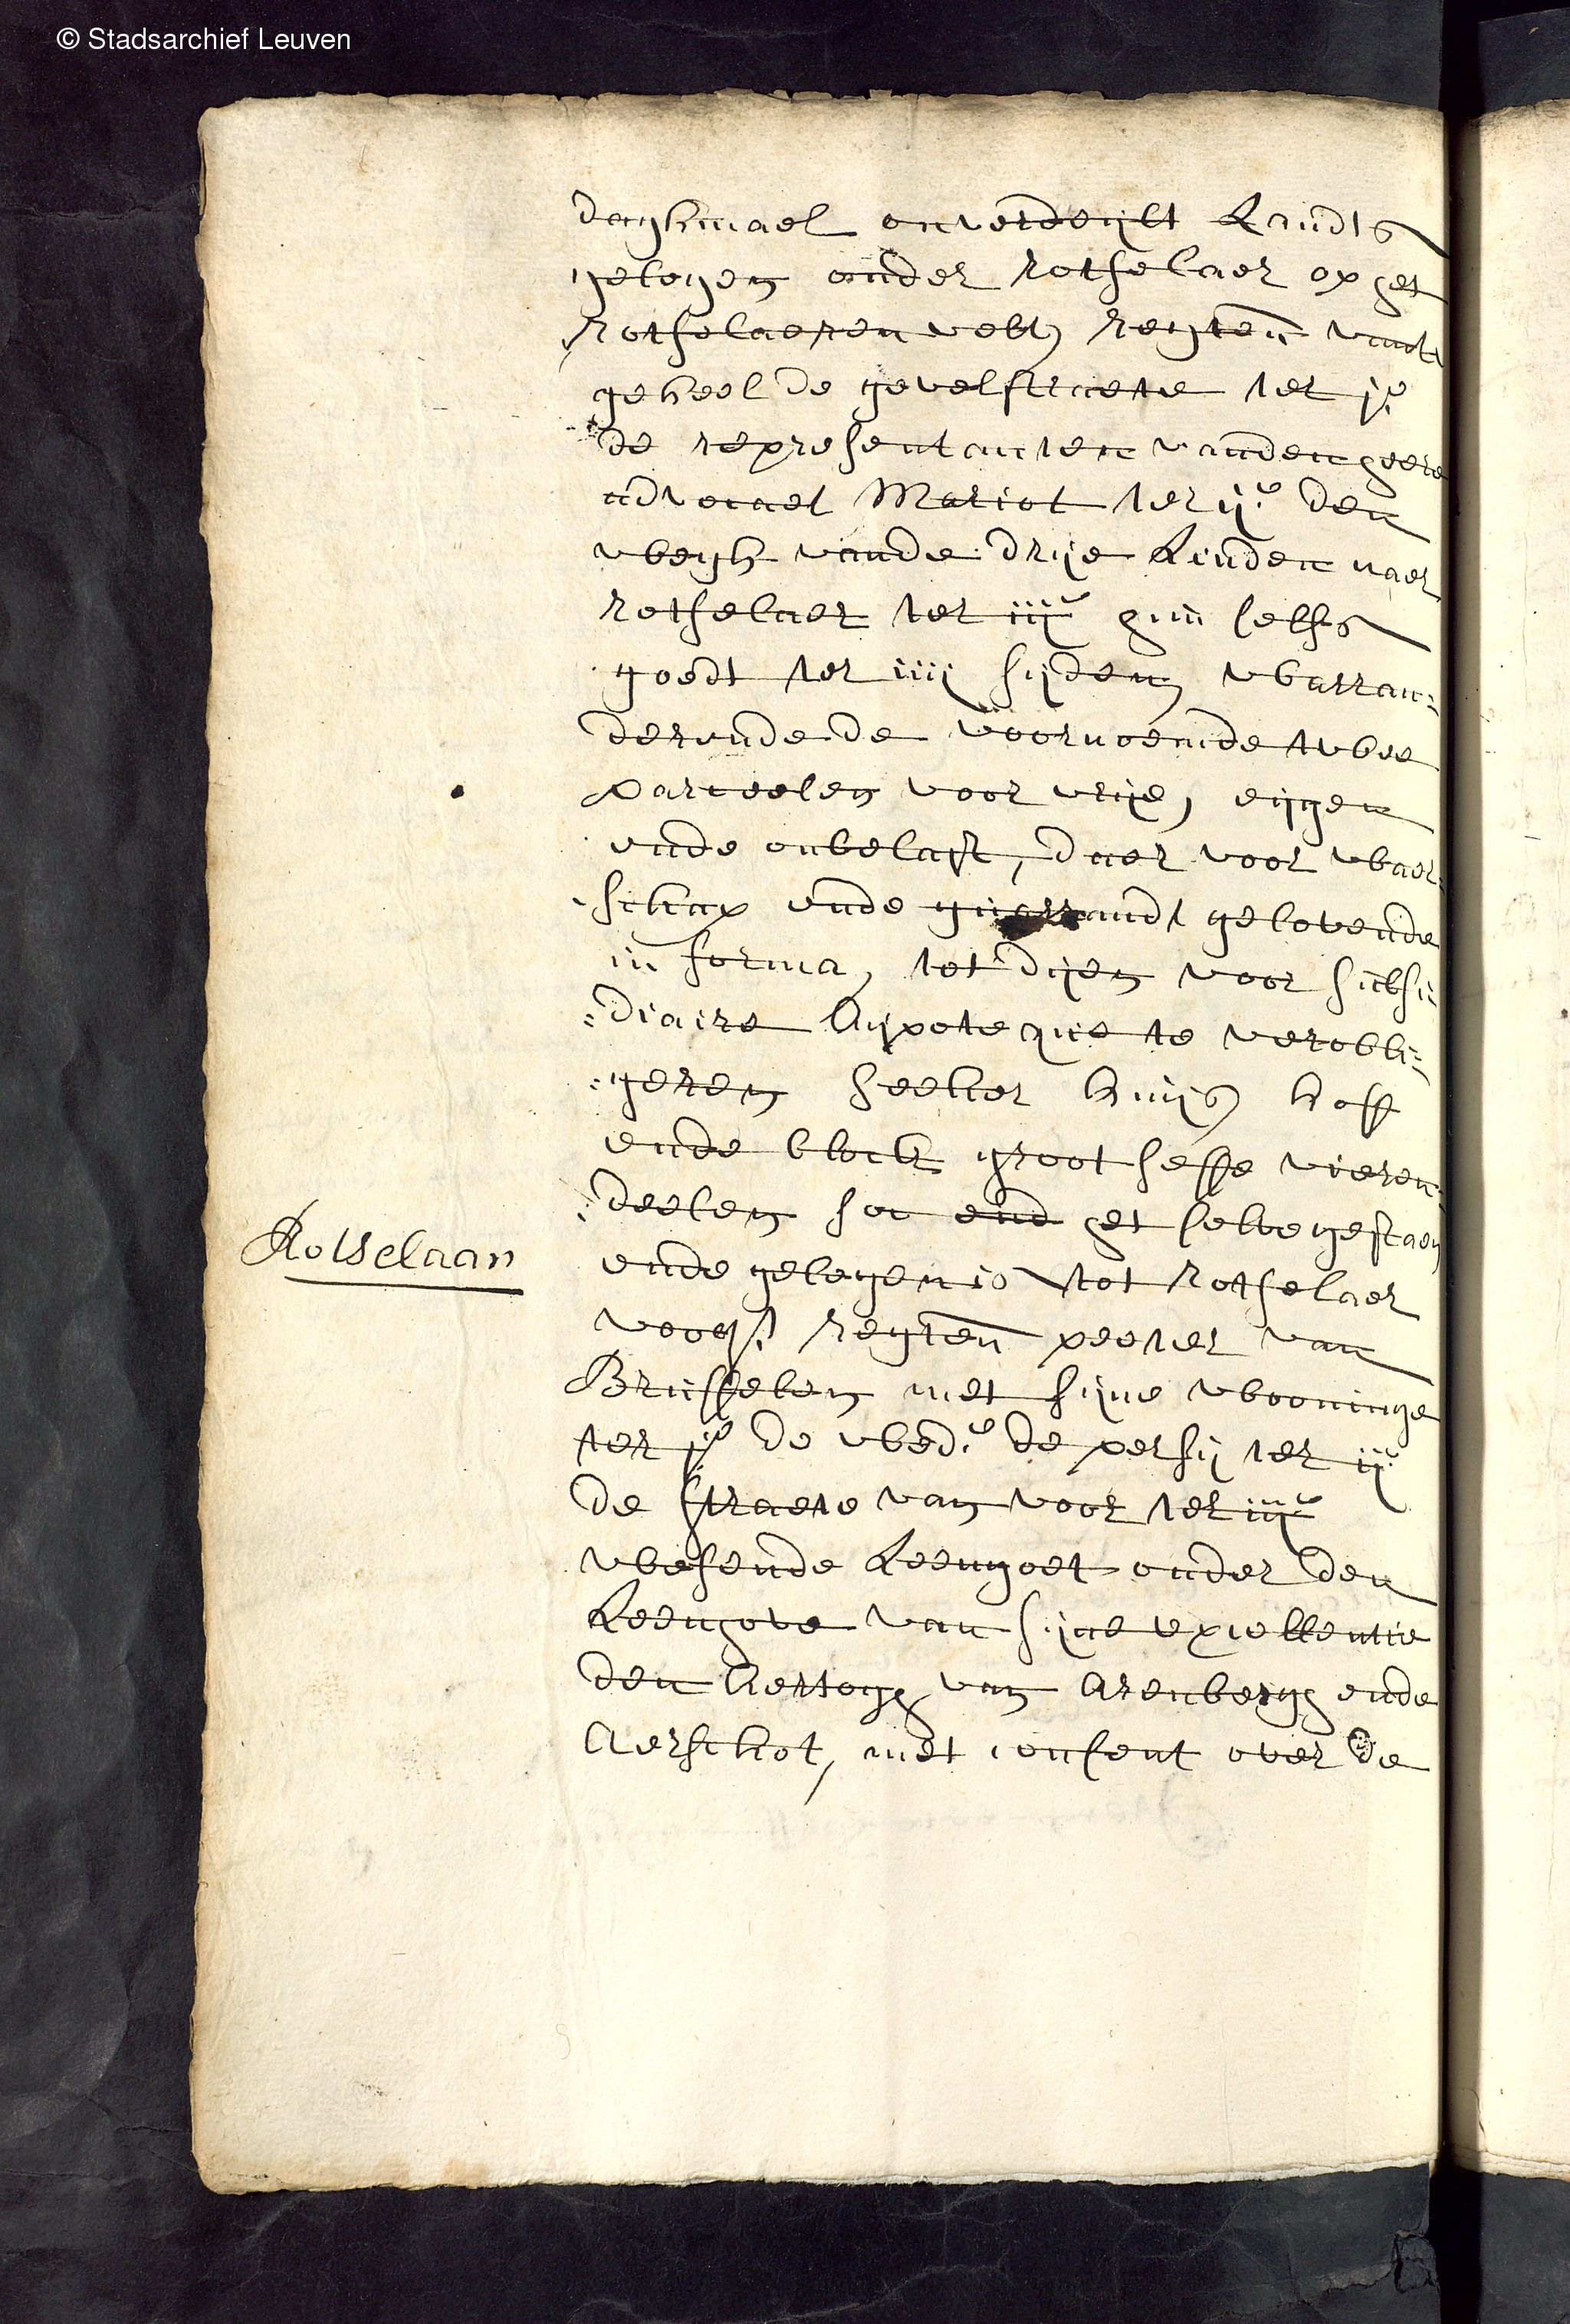 © Stadsarchief Leuven
daghmael onverdeylt Landts
gelegen onder rotselaer op het
rotselaeren velt, regten vant
geheel de hevelstraete ter j.e
de representanten vanden heere
advocaet Mariot ter ij.e den
wegh vande drije Linden naer
rotselaer ter iij.e hun selfs
goedt ter iiij sijden, waeran=
derende de voornoemde twee
parceelen voor vrije, eygen
ende onbelast, daer voor waer=
schap ende guarrandt gelovende
in forma, tot dijen voor subsi=
=diaire hijpoteque te verobli=
=geren seeker huijs, hoff
ende block groot sesse vieren=
=deelen soo ende het selve gestaen
ende gelegen is tot rotselaer
Rotselaar
voors.t regten peeter van
Brusselen met sijne wooninge
ter j.e de wed.e de persij ter ij.e
de straete van voor ter iij.e
wesende Leengoet onder den
Leenhove van sijne excellentie
den hertogh van Arenbergh ende
Aerschot, met consent over de